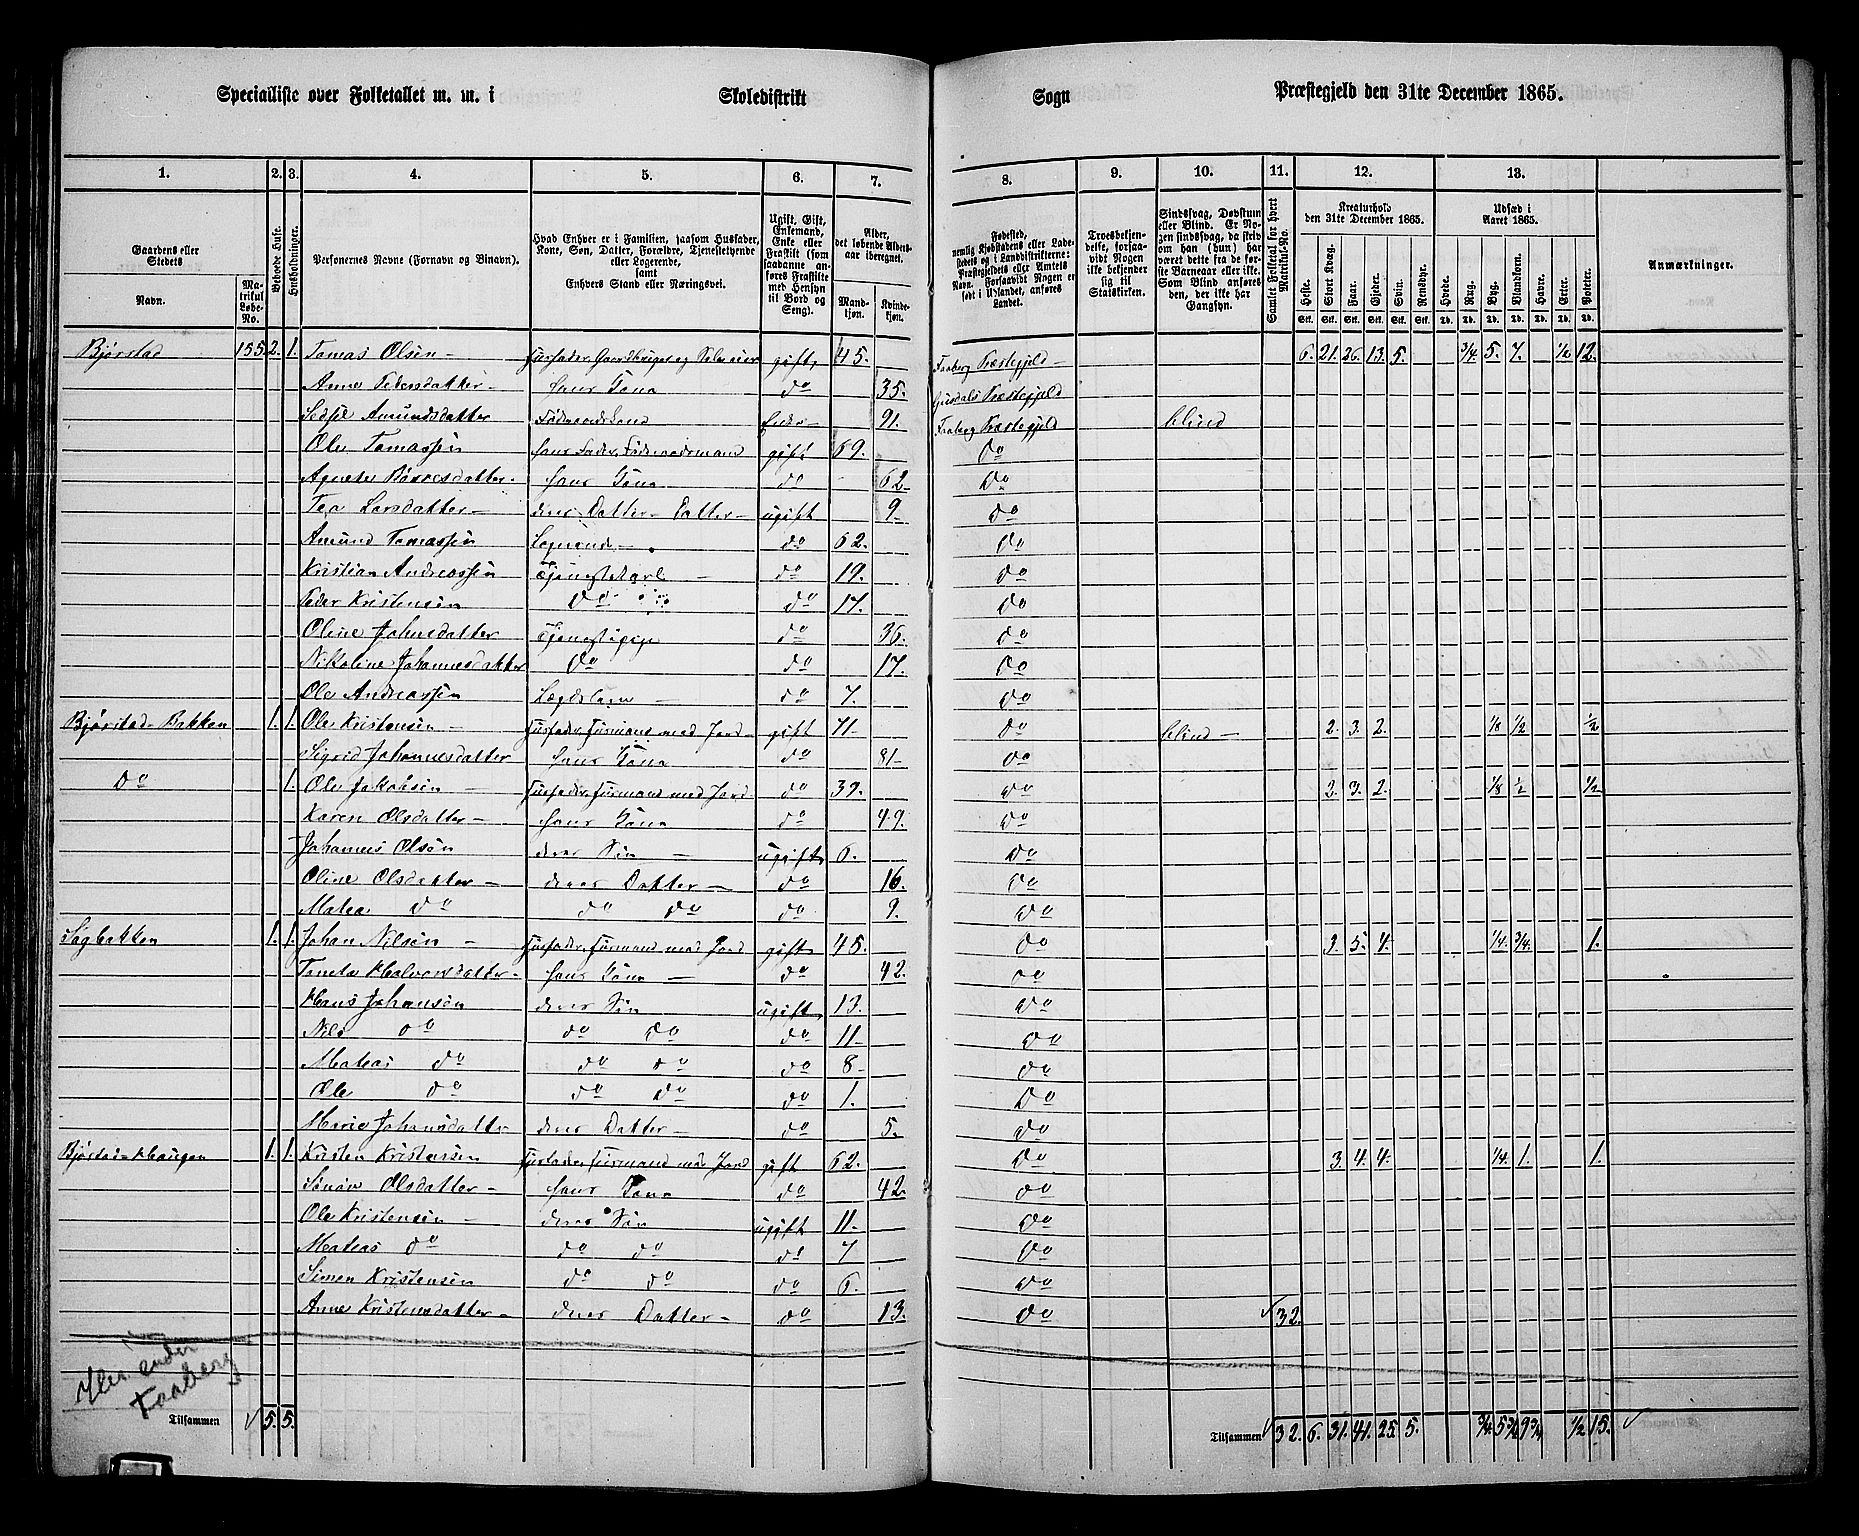 Specialliste over Folketallet m. m. i Skoledistrikt Sogn Præstegjeld den 31te December 1865.
1. 2. 3. 4. 5. 6. 7. 8. 9. 10. 11. 12. 13.
Gaardens eller Stedets Navn. Matrikul Løbe-No.
Beboede Huse.
Husholdninger.
Personernes Navne (Fornavn og Binavn).
Hvad Enhver er i Familien, saasom Husfader, Kone, Søn, Datter, Forældre, Tjenestetyende eller Logerende, samt Enhvers Stand eller Næringsvei.
Ugift, Gift, Enkemand, Enke eller Fraskilt (som saadanne anføres Fraskilte med Hensyn til Bord og Seng).
Alder, det løbende Alders-aar iberegnet.
Mand-kjøn. Kvinde-kjøn.
Fødested, nemlig Kjøbstadens eller Ladestedets og i Landdistrikterne: Præstegjeldets eller Amtets Navn. Forsaavidt Nogen er født i Udlandet, anføres Landet.
Troesbekjendelse, forsaavidt Nogen ikke bekjender sig til Statskirken.
Sindssvag, Døvstum eller Blind. Er Nogen sindssvag, da skrives om han (hun) har været dette fra de første Barneaar eller ikke. Som Blind anføres den, der ikke har Gangsyn.
Samlet Folketal for hvert Matrikul-No.
Kreaturhold den 31te December 1865.
Heste. Stort Kvæg. Faar. Gjeder. Svin. Rensdyr.
Udsæd i Aaret 1865.
Hvede. Rug. Byg. Blandkorn. Havre. Erter. Poteter.
Anmærkninger.
Bjørstad 155 2. 1. Tomas Olsen Husfader, Gaardbruger og Selveier gift 45. Faaberg Præstegjeld 6. 21. 26. 13. 5. 3/4. 5. 7. 1/2 12.
Anne Pedersdatter hans Kone do 35. Gusdals Præstegjeld
Sedsel Amundsdatter Føderaadskone Enke 91. Faaberg Præstegjeld blind
Ole Tomassen hans Fader, Føderaadsmand gift 69. do
Agnete Baaresdatter hans Kone do 62 do
Tea Larsdatter deres Datter Datter ugift 9 do
Amund Tomassen Logerende do 62. do
Kristian Andreassen Tjenestekarl do 19. do
Peder Kristensen do do 17. do
Oline Johnsdatter Tjenestepige do 36. do
Nikoline Johannesdatter do do 17. do
Ole Andreassen Lægdslem do 7. do
Bjørstad-Bakken 1. 1. Ole Kristensen Husfader, Husmand med Jord gift 71 do blind 2. 3. 2. 1/8 1/2 1/2
Sigrid Johannesdatter hans Kone do 81 do
do 1. Ole Jakobsen Husfader, Husmand med Jord do 39. do 2. 3. 2. 1/8 1/2 1/2
Karen Olsdatter hans Kone do 49. do
Johannes Olsen deres Søn ugift 6. do
Oline Olsdatter deres Datter do 16. do
Matea do do do do 9. do
Sagbakken 1. 1. Johan Nilsen Husfader, Husmand med Jord gift 45. do 3. 5. 4. 1/4. 3/4. 1.
Taneta Halvorsdatter hans Kone do 42. do
Hans Johansen deres Søn ugift 13. do
Nils do do do do 11 do
Mateas do do do do 8 do
Ole do do do do 1. do
Marie Johansdatter deres Datter do 5. do
Bjørstad-Haugen 1. 1. Kristen Kristensen Husfader, Husmand med Jord gift 62. do 3. 4. 4. 1/4. 1. 1.
Olsdatter hans Kone do 42. do
Ole Kristensen deres Søn ugift 11. do
Mateas do do do do 7 do
Simen Kristensen do do do 6. do
Anne Kristensdatter deres Datter do 13. do 32.
Her ender
Faaberg
Tilsammen 5. 5. Tilsammen 32. 6. 31. 41. 25. 5. 3/4. 5 3/4 9 3/4 1/2 15.